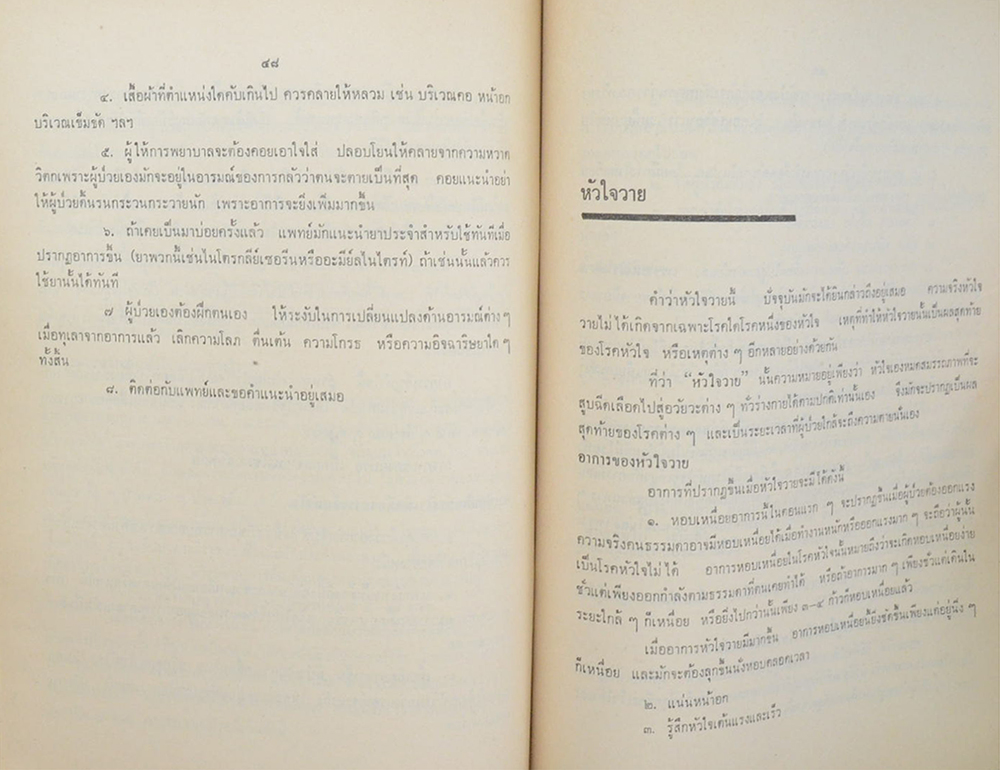 ๔๘
๔. เสื้อผ้าที่ตำแหน่งใดคับเกินไป ควรคลายให้หลวม เช่น บริเวณคอ หน้าอก
บริเวณเข็มขัด ฯลฯ
๕. ผู้ให้การพยาบาลจะต้องคอยเอาใจใส่ ปลอบโยนให้คลายจากความหวาด
วิตกเพราะผู้ป่วยเองมักจะอยู่ในอารมณ์ของการกลัวว่าตนจะตายเป็นที่สุด คอยแนะนำอย่า
ให้ผู้ป่วยดิ้นรนกระวนกระวายนัก เพราะอาการจะยิ่งเพิ่มมากขึ้น
๖. ถ้าเคยเป็นมาบ่อยครั้งแล้ว แพทย์มักแนะนำยาประจำสำหรับใช้ทันทีเมื่อ
ปรากฏอาการขึ้น (ยาพวกนี้เช่นไนโตรกลีย์เซอรีนหรืออะมีย์ลไนไตรท์) ถ้าเช่นนั้นแล้วควร
ใช้ยานั้นได้ทันที
๗ ผู้ป่วยเองต้องฝึกตนเอง ให้ระงับในการเปลี่ยนแปลงด้านอารมณ์ต่างๆ
เมื่อทุเลาจากอาการแล้ว เลิกความโลภ ตื่นเต้น ความโกรธ หรือความอิจฉาริษยาใดๆ
ทั้งสิ้น
๘. ติดต่อกับแพทย์และขอคำแนะนำอยู่เสมอ
หัวใจวาย
คำว่าหัวใจวายนี้ ปัจจุบันมักจะได้ยินกล่าวถึงอยู่เสมอ ความจริงหัวใจ
วายไม่ได้เกิดจากเฉพาะโรคใดโรคหนึ่งของหัวใจ เหตุที่ทำให้หัวใจวายนั้นเป็นผลสุดท้าย
ของโรคหัวใจ หรือเหตุต่าง ๆ อีกหลายอย่างด้วยกัน
ที่ว่า “หัวใจวาย” นั้นความหมายอยู่เพียงว่า หัวใจเองหมดสมรรถภาพที่จะ
สูบฉีดเลือดไปสู่อวัยวะต่าง ๆ ทั่วร่างกายได้ตามปกติเท่านั้นเอง จึงมักจะปรากฏเป็นผล
สุดท้ายของโรคต่าง ๆ และเป็นระยะเวลาที่ผู้ป่วยใกล้จะถึงความตายนั่นเอง
อาการของหัวใจวาย
อาการที่ปรากฏขึ้นเมื่อหัวใจวายจะมีได้ดังนี้
๑. หอบเหนื่อยอาการนี้ในตอนแรก ๆ จะปรากฏขึ้นเมื่อผู้ป่วยต้องออกแรง
ความจริงคนธรรมดาอาจมีหอบเหนื่อยได้เมื่อทำงานหนักหรือออกแรงมาก ๆ จะถือว่าผู้นั้น
เป็นโรคหัวใจไม่ได้ อาการหอบเหนื่อยในโรคหัวใจนั้นหมายถึงว่าจะเกิดหอบเหนื่อยง่าย
ชั่วแต่เพียงออกกำลังตามธรรมดาที่ตนเคยทำได้ หรือถ้าอาการมาก ๆ เพียงชั่วแต่เดินใน
ระยะใกล้ ๆ ก็เหนื่อย หรือยิ่งไปกว่านั้นเพียง ๓–๔ ก้าวก็หอบเหนื่อยแล้ว
เมื่ออาการหัวใจวายมีมากขึ้น อาการหอบเหนื่อยนี้ยิ่งชัดขึ้นเพียงแต่อยู่นิ่ง ๆ
ก็เหนื่อย และมักจะต้องลุกขึ้นนั่งหอบตลอดเวลา
๒. แน่นหน้าอก
๓. รู้สึกหัวใจเต้นแรงและเร็ว